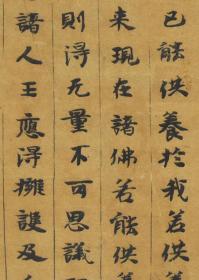 已能供養於我若供養
来現在諸佛若能供養
則得无量不可思議
諸人王應得擁護及